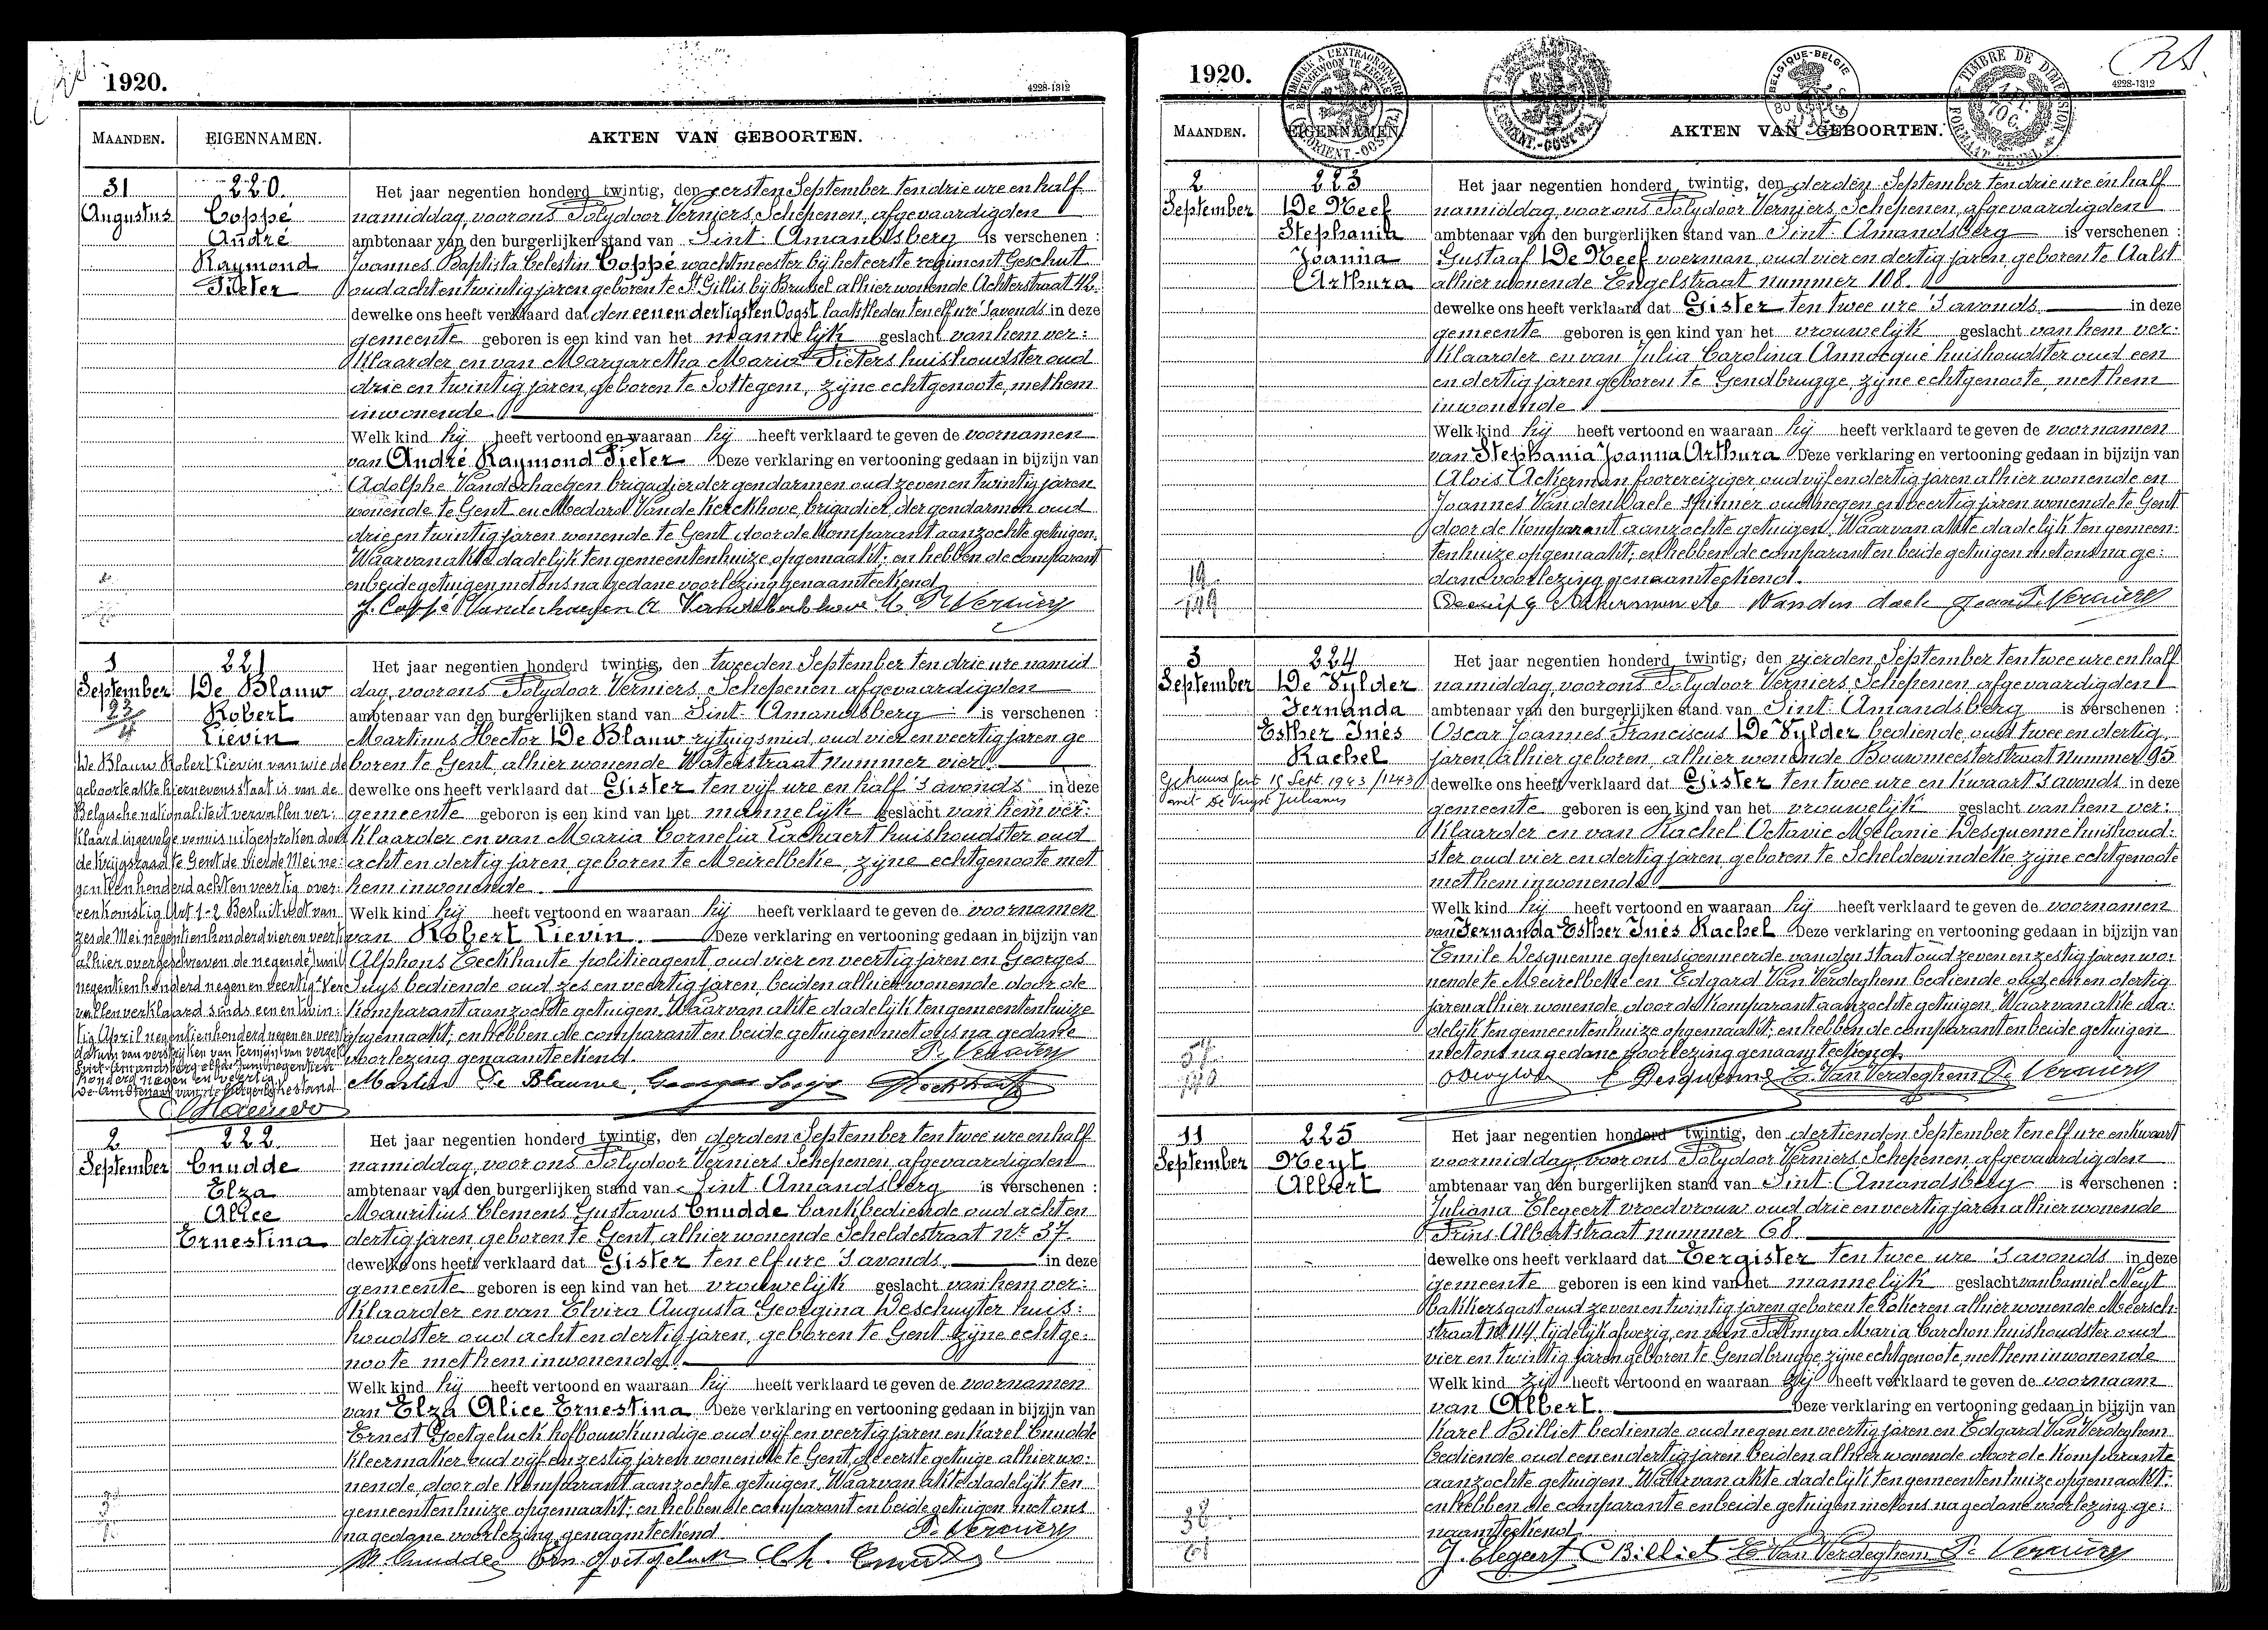 1920.
4228-1312
MAANDEN.
EIGENNAMEN.
AKTEN VAN GEBOORTEN.
31
Augustus
220.
Coppé
André
Raymond
Pieter
Het jaar negentien honderd twintig, den eersten September ten drie ure en half
namiddag, voor ons Polydoor Verniers, Schepenen, afgevaardigden
ambtenaar van den burgerlijken stand van Sint-Amandsberg is verschenen :
Joannes Baptista Celestin Coppé wachtmeester bij het eerste regiment Geschut
oud acht en twintig jaren geboren te St Gillis bij Brussel alhier wonende Achterstraat 42.
dewelke ons heeft verklaard dat den een en dertigsten Oogst laatstleden ten elf ure 's avonds in deze
gemeente geboren is een kind van het mannelijk geslacht van hem ver:
klaarder en van Margaretha Maria Pieters huishoudster oud
drie en twintig jaren, geboren te Sottegem, zijne echtgenoote, met hem
inwonende.
Welk kind hij heeft vertoond en waaraan hij heeft verklaard te geven de voornamen
van André Raymond Pieter Deze verklaring en vertooning gedaan in bijzijn van
Adolphe Vanderhaegen brigadier der gendarmen oud zeven en twintig jaren
wonende te Gent en Medard Van de Kerckhove, brigadier der gendarmen oud
drie en twintig jaren wonende te Gent door de komparant aanzochte getuigen.
Waarvan akte dadelijk ten gemeentenhuize opgemaakt; en hebben de comparant
en beide getuigen met ons na gedane voorlezing genaamteekend
J. Coppé Vanderhaegen A Vandekerkhove M. P. Verniers
1
September
221
De Blauw
Robert
Lievin
De Blauw Robert Lievin van wie de
geboorteakte hiernevens staat is van de
Belgische nationaliteit vervallen ver:
klaard ingevolge vonnis uitgesproken door
de krijgsraad te Gent de vierde Mei ne:
gentien honderd acht en veertig over:
eenkomstig Art 1-2 Besluitwet van
zes de Mei negentien honderd vier en veertig
alhier overgeschreven de negende Juni
negentien honderd negen en veertig. Ver
vallen verklaard sinds een en twin:
tig April negentien honderd negen en veertig
datum van verstrijken van termijn van verzet
Sint-Amandsberg elfde Juni negentien
honderd negen en veertig.
De Ambtenaar van de burgerlijke stand
Het jaar negentien honderd twintig, den tweeden September ten drie ure namid
dag, voor ons Polydoor Verniers, Schepenen, afgevaardigden
ambtenaar van den burgerlijken stand van Sint-Amandsberg is verschenen :
Martinus Hector De Blauw rijtuigsmid, oud vier en veertig jaren ge
boren te Gent, alhier wonende Waterstraat nummer vier.
dewelke ons heeft verklaard dat Gister ten vijf ure en half 's avonds in deze
gemeente geboren is een kind van het mannelijk geslacht van hem ver:
klaarder en van Maria Cornelia Lachaert huishoudster oud
acht en dertig jaren, geboren te Meirelbeke, zijne echtgenoote met
hem inwonende.
Welk kind hij heeft vertoond en waaraan hij heeft verklaard te geven de voornamen
van Robert Lievin. Deze verklaring en vertooning gedaan in bijzijn van
Alphons Eeckhaute politieagent, oud vier en veertig jaren en Georges
Suys bediende oud zes en veertig jaren, beiden alhier wonende door de
komparant aanzochte getuigen. Waarvan akte dadelijk ten gemeentenhuize
opgemaakt; en hebben de comparant en beide getuigen met ons na gedane
voorlezing genaamteekend. P. Verniers
Martin De Blauwe Georges Suys
2
September
222
Cnudde
Elza
Alice
Ernestina
Het jaar negentien honderd twintig, den derden September ten twee ure en half
namiddag, voor ons Polydoor Verniers Schepenen, afgevaardigden
ambtenaar van den burgerlijken stand van Sint-Amandsberg is verschenen :
Mauritius Clemens Gustavus Cnudde bankbediende oud acht en
dertig jaren, geboren te Gent, alhier wonende Scheldestraat Nr 37
dewelke ons heeft verklaard dat Gister ten elf ure 's avonds. in deze
gemeente geboren is een kind van het vrouwelijk geslacht van hem ver:
klaarder en van Elvira Augusta Georgina Deschuyter huis:
houdster oud acht en dertig jaren, geboren te Gent zijne echtge:
noote met hem inwonende.
Welk kind hij heeft vertoond en waaraan hij heeft verklaard te geven de voornamen
van Elza Alice Ernestina Deze verklaring en vertooning gedaan in bijzijn van
Ernest Goetgeluck hofbouwkundige oud vijf en veertig jaren en Karel Cnudde
kleermaker oud vijf en zestig jaren wonende te Gent, de eerste getuige alhier wo:
nende, door de komparant aanzochte getuigen. Waarvan akte dadelijk ten
gemeentenhuize opgemaakt; en hebben de comparant en beide getuigen met ons
na gedane voorlezing genaamteekend P. Verniers
M. Cnudde Ern Goetgeluck Ch. Cnudde
1920.
4228-1312
BELGIQUE-BELGIË
TIMBRE DE DIMENSION
MAANDEN.
EIGENNAMEN.
AKTEN VAN GEBOORTEN.
2
September
223
De Neef
Stephania
Joanna
Arthura
19
Het jaar negentien honderd twintig, den derden September ten drie ure en half
namiddag, voor ons Polydoor Verniers, Schepenen, afgevaardigden
ambtenaar van den burgerlijken stand van Sint-Amandsberg is verschenen :
Gustaaf De Neef voerman, oud vier en dertig jaren, geboren te Aalst
alhier wonende Engelstraat nummer 108.
dewelke ons heeft verklaard dat Gister ten twee ure 's avonds. in deze
gemeente geboren is een kind van het vrouwelijk geslacht van hem ver:
klaarder en van Julia Carolina Annocqué huishoudster oud een
en dertig jaren, geboren te Gendbrugge, zijne echtgenoote, met hem
inwonende.
Welk kind hij heeft vertoond en waaraan hij heeft verklaard te geven de voornamen
van Stephania Joanna Arthura Deze verklaring en vertooning gedaan in bijzijn van
Alois Ackerman foorereiziger oud vijf en dertig jaren alhier wonende en
Joannes Van den Daele spinner oud negen en veertig jaren wonende te Gent
door de komparant aanzochte getuigen. Waarvan akte dadelijk ten gemeen:
tenhuize opgemaakt; en hebben de comparant en beide getuigen met ons na ge:
dane voorlezing genaamteekend.
Deneef G Ackerman A Vanden daele Jean P. Verniers
3
September
224
De Vylder
Fernanda
Esther Inès
Rachel
Gehuwd Gent 18 Sept. 1943/1243
met De Vuyst Julianus
Het jaar negentien honderd twintig, den vierden September ten twee ure en half
namiddag, voor ons Polydoor Verniers, Schepenen, afgevaardigden
ambtenaar van den burgerlijken stand van Sint-Amandsberg is verschenen :
Oscar Joannes Franciscus De Vylder bediende, oud twee en dertig
jaren, alhier geboren, alhier wonende Bouwmeesterstraat nummer 95
dewelke ons heeft verklaard dat Gister ten twee ure en kwaart 's avonds in deze
gemeente geboren is een kind van het vrouwelijk geslacht van hem ver:
klaarder en van Rachel Octavie Mélanie Desquenne huishoud:
ster oud vier en dertig jaren, geboren te Scheldewindeke, zijne echtgenoote
met hem inwonende.
Welk kind hij heeft vertoond en waaraan hij heeft verklaard te geven de voornamen
van Fernanda Esther Inès Rachel Deze verklaring en vertooning gedaan in bijzijn van
Emile Desquenne gepensionneerde van den staat oud zeven en zestig jaren wo:
nende te Meirelbeke en Edgard Van Verdeghem bediende oud een en dertig
jaren alhier wonende, door de komparant aanzochte getuigen. Waarvan akte da:
delijk ten gemeentenhuize opgemaakt; en hebben de comparant en beide getuigen
met ons na gedane voorlezing genaamteekend.
E Desquenne E. Van Verdeghem P. Verniers
11
September
225
Neyt
Albert
Het jaar negentien honderd twintig, den dertienden September ten elf ure en kwaart
voormiddag, voor ons Polydoor Verniers Schepenen, afgevaardigden
ambtenaar van den burgerlijken stand van Sint-Amandsberg is verschenen :
Juliana Elegeert vroedvrouw oud drie en veertig jaren alhier wonende
Prins Albertstraat nummer 68.
dewelke ons heeft verklaard dat Eergister ten twee ure 's avonds in deze
gemeente geboren is een kind van het mannelijk geslacht van Camiel Neyt
bakkersgast oud zeven en twintig jaren geboren te Lokeren alhier wonende Meersch:
straat Nr 114, tijdelijk afwezig, en van Palmyra Maria Carchon huishoudster oud
vier en twintig jaren geboren te Gendbrugge zijne echtgenoote, met hem inwonende
Welk kind zij heeft vertoond en waaraan zij heeft verklaard te geven de voornaam
van Albert. Deze verklaring en vertooning gedaan in bijzijn van
Karel Billiet bediende oud negen en veertig jaren en Edgard Van Verdeghem
bediende oud een en dertig jaren beiden alhier wonende door de komparante
aanzochte getuigen. Waarvan akte dadelijk ten gemeentenhuize opgemaakt;
en hebben de comparante en beide getuigen met ons na gedane voorlezing ge:
naamteekend.
J. Elegeert C Billiet E. Van Verdeghem P. Verniers